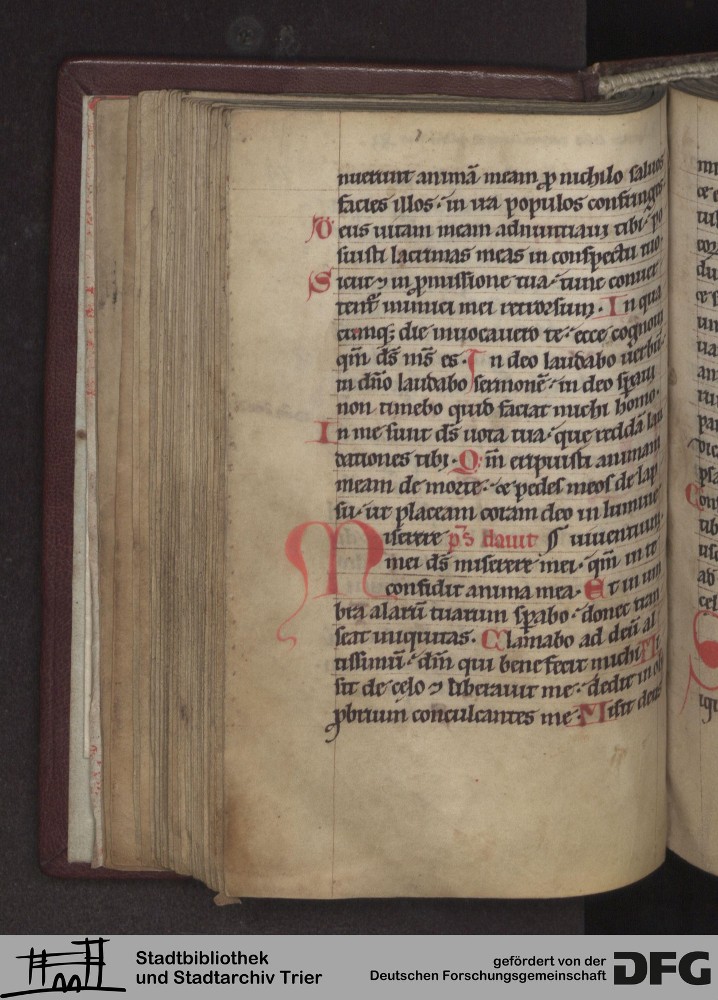 nuerunt animā meam ꝓ nichilo saluos
facies illos· in ira populos confringes·
Deus uitam meam adnuntiaui tibi· po
suisti lacrimas meas in conspectu tuo·
Sicut ⁊ in ꝓmissione tua· tunc conuer
tent᷑ inimici mei retrorsum· In qua
cumq; die inuocauero te· ecce cognoui
qm̄ ds̄ ms̄ es· In deo laudabo uerbū·
in dn̄o laudabo sermonē· in deo sꝑaui
non timebo quid faciat michi homo·
In me sunt ds̄ uota tua· que reddā lau
dationes tibi· Qm̄ eripuisti animam
meam de morte· ⁊ pedes meos de lap
su· ut placeam coram deo in lumine
Miserere ps̄ dauit uiuentium·
mei ds̄ miserere mei· qm̄ in te
confidit anima mea· Et in um
bra alarū tuarum sꝑabo· donec tran
seat iniquitas· Clamabo ad deū al
tissimū· dm̄ qui benefecit michi Mi
sit de celo ⁊ liberauit me· dedit in ob
ꝓbrium conculcantes me· Misit deus
Stadtbibliothek
und Stadtarchiv Trier
gefördert von der
Deutschen Forschungsgemeinschaft
DFG